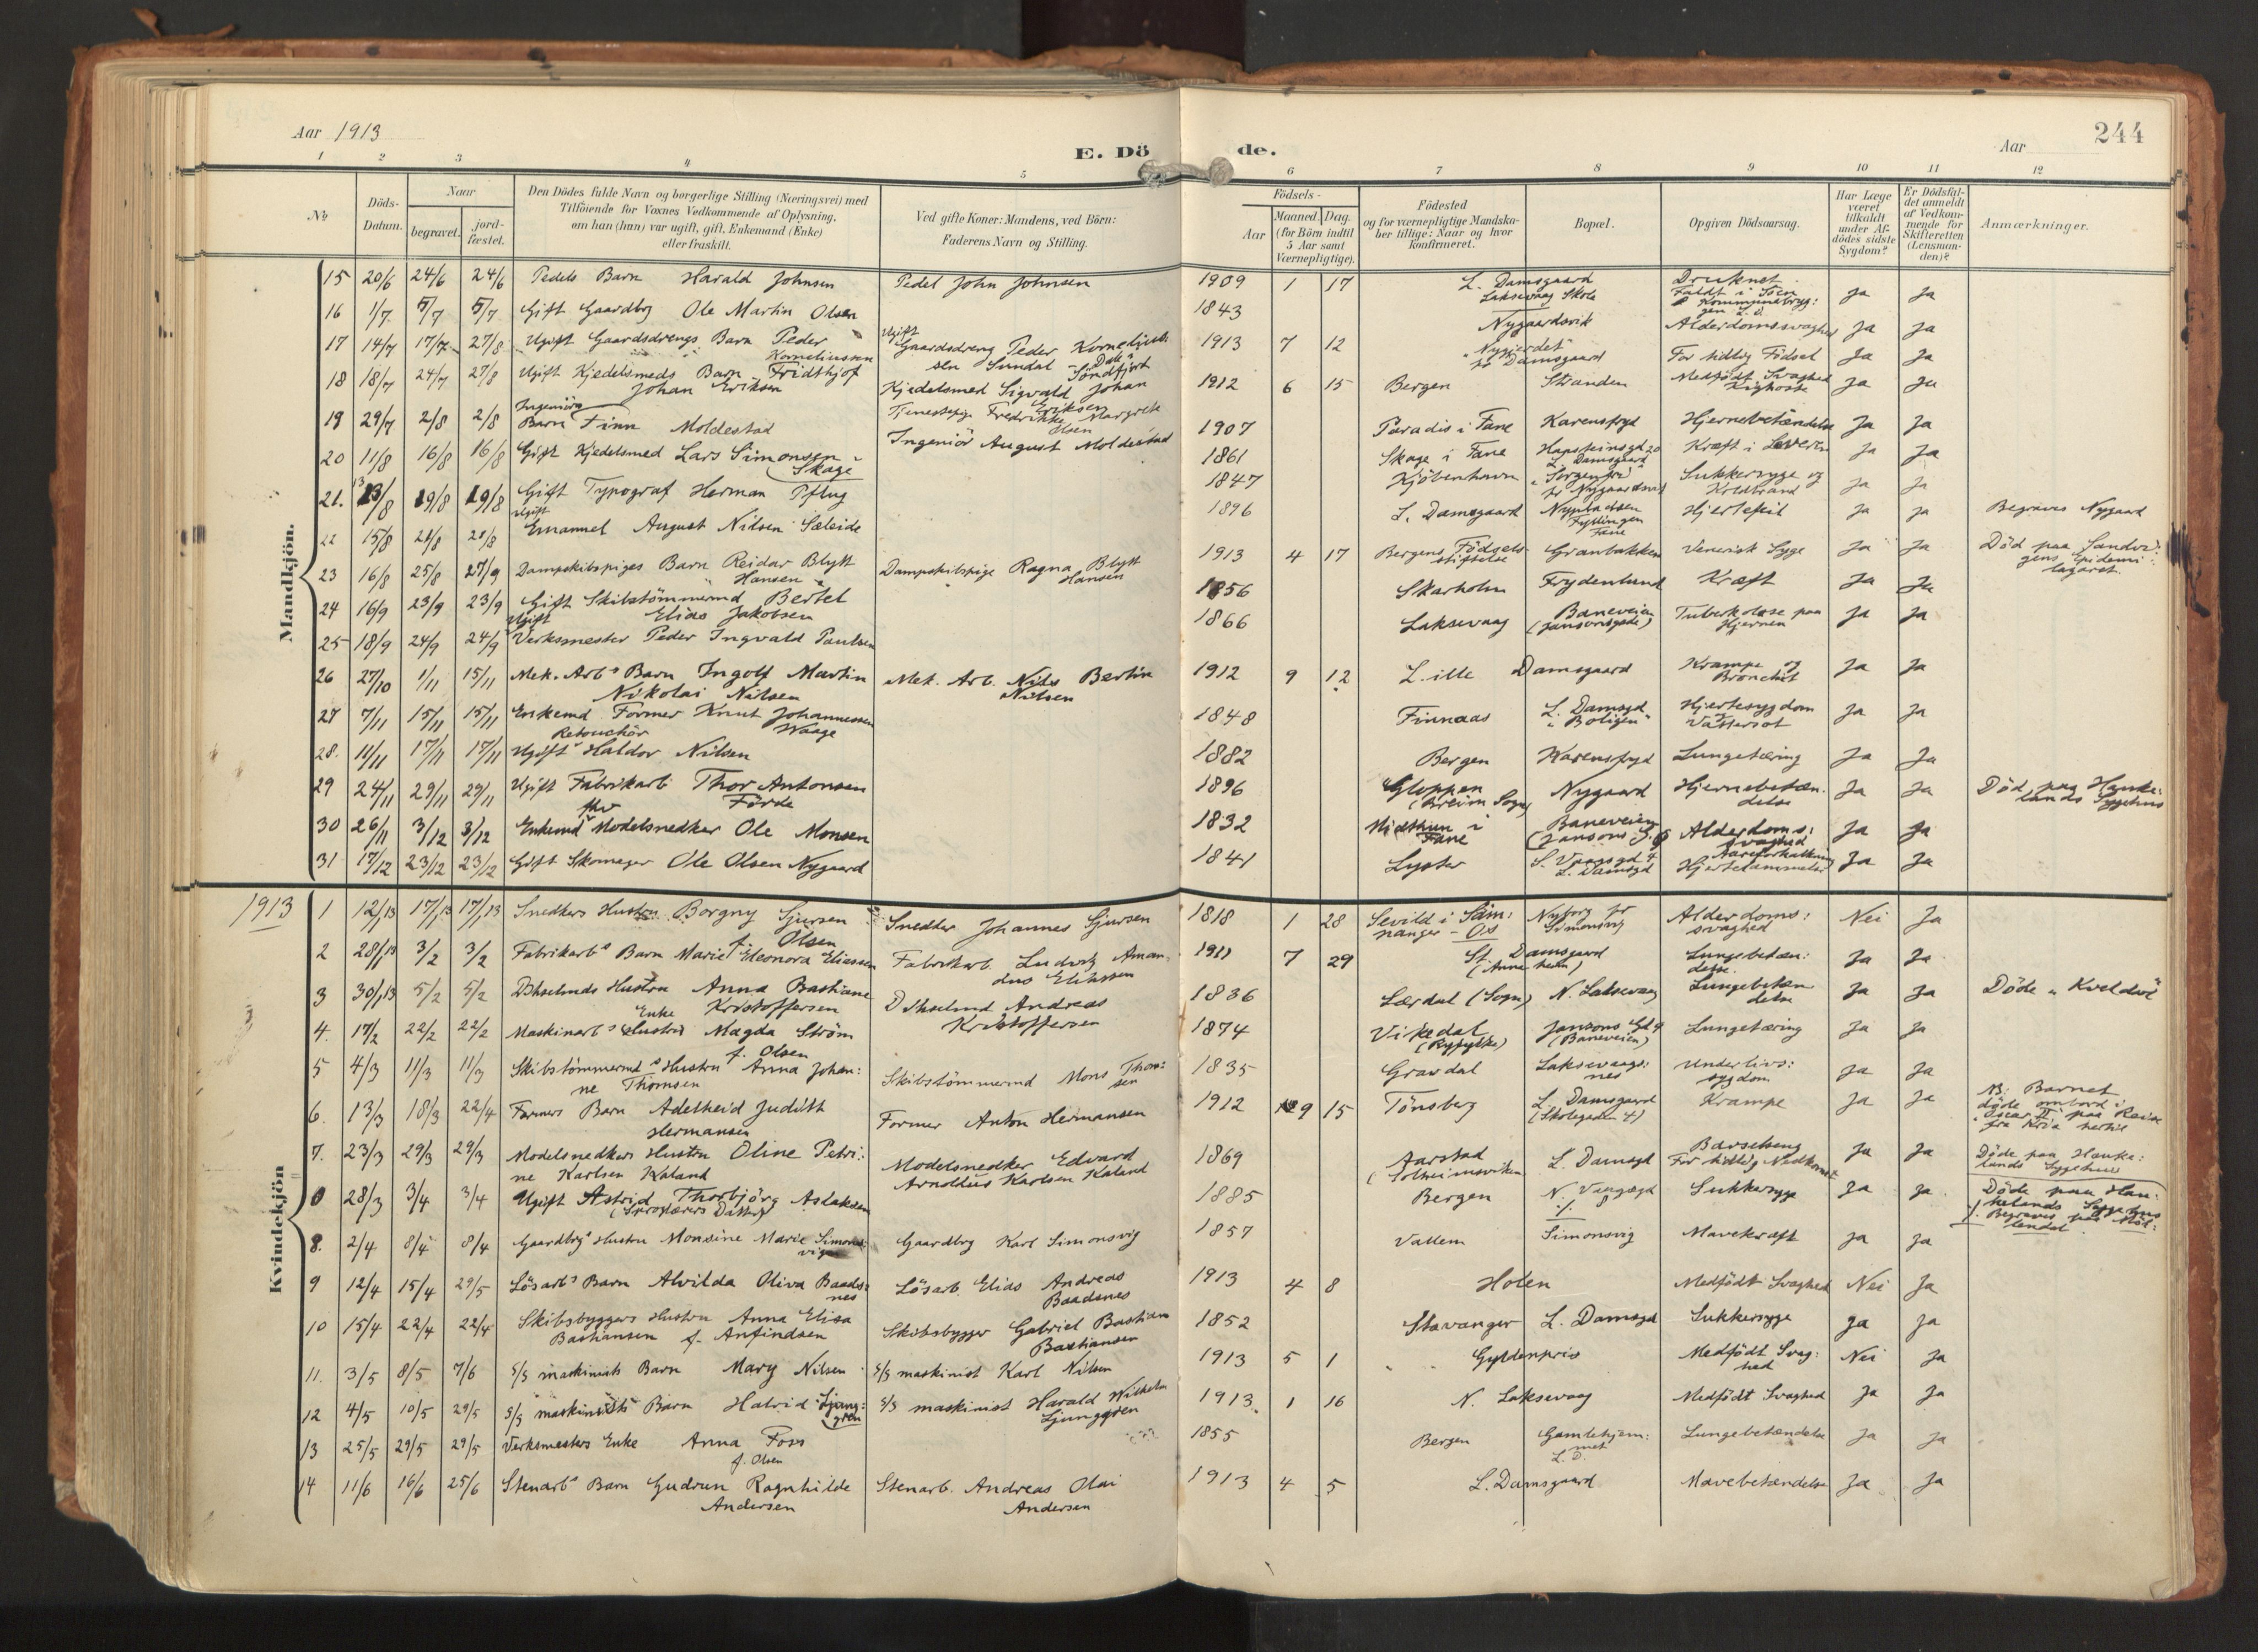 Aar 1913
E. Dö
de.
Aar
244
1 2 3 4 5 6 7 8 9 10 11 12
No
Döds-Datum.
Naar
begravet.
jord-fæstet.
Den Dödes fulde Navn og borgerlige Stilling (Næringsvei) med
Tilföiende for Voxnes Vedkommende af Oplysning,
om han (hun) var ugift, gift, Enkemand (Enke)
eller fraskilt.
Ved gifte Koner: Mandens, ved Börn:
Faderens Navn og Stilling.
Födsels-
Aar
Maaned. Dag.
(for Börn indtil
5 Aar samt
Værnepligtige).
Födested
og for værnepligtige Mandska-
ber tillige: Naar og hvor
konfirmeret.
Bopæl.
Opgiven Dödsaarsag.
Har Læge
været
tilkaldt
under Af-
dödes sidste
Sygdom?
Er Dödsfal-
det anmeldt
af Vedkom-
mende for
Skifteretten
(Lensman-
den)?
Anmærkninger.
Mandkjön.
15 20/6 24/6 24/6 Pedels Barn Harald Johnsen Pedel John Johnsen 1909 1 17 L. Damsgaard Laksevaag Skole Druknet. Faldt i Söen Kommunebryg: gen L. D. Ja Ja
16 1/7 5/7 5/7 Gift Gaardbrg Ole Martin Olsen 1843 Nygaardsvik Alderdomssvaghed Ja Ja
17 14/7 17/7 27/8 Ugift Gaardsdrengs Barn Peder Korneliussen Ugift Gaardsdreng Peder Kornelius: sen Sundal Söndfjord 1913 7 12 "Nygjerdet" pr Damsgaard For tidlig Födsel Ja Ja
18 18/7 24/7 27/8 Ugift Kjedelsmeds Barn Fridthjof Johan Eriksen Kjedelsmed Sigvald Johan Eriksen Tjenestepige Fredrikke Margrete Olsen 1912 6 15 Bergen Stranden Medfödt Svaghed Kighoste Ja Ja
19 29/7 2/8 2/8 Ingeniörs Barn Finn Moldestad Ingeniör August Moldestad 1907 Paradis i Fane Karensfryd Hjernebetændelse Ja Ja
20 11/8 16/8 16/8 Gift Kjedelsmed Lars Simonsen Skage 1861 Skage i Fane L. Damsgaard Kræft i Leveren Ja Ja
21. 13/8 19/8 19/8 Gift Typograf Herman Pflug 1847 Kjöbenhavn "Sorgenfri" pr Nygaardsvik Sukkersyge og Koldbrand Ja Ja
22 15/8 21/8 21/8 Ugift Emanuel August Nilsen Sæleide 1896 L. Damsgaard Fyllingen Fane Hjertefeil Ja Ja Begraves Nygaard
23 16/8 25/8 27/9 Dampskibspiges Barn Reidar Blytt Hansen Dampskibspige Ragna Blytt Hansen 1913 4 17 Bergens Födsels- stiftelse Granbakken Venerisk Syge Ja Ja Död paa Sandvi: gens Epidemi: lazaret.
24 16/9 23/9 23/9 Gift Skibstömmermd Bertel Elias Jakobsen 1856 Skarholm Frydenlund Kræft Ja Ja
25 18/9 24/9 24/9 Ugift Verksmester Peder Ingvald Paulsen 1866 Laksevaag Baneveien (Jansonsgade) Tuberkolose paa Hjernen Ja Ja
26 27/10 1/11 15/11 Mek. Arbs Barn Ingolf Martin Nikolai Nilsen Mek. Arb. Nils Bertin Nilsen 1912 9 12 Lille Damsgaard Krampe og Bronchit Ja Ja
27 7/11 15/11 15/11 Enkemd Former Knut Johannessen Waage 1848 Finnaas L. Damsgd "Boligen" Hjertesygdom Vattersot Ja Ja
28. 11/11 17/11 17/11 Ugift Retouchör Haldor Nilsen 1882 Bergen Karensfryd Lungetæring Ja Ja
29 24/11 29/11 29/11 Ugift Fabrikarb Thor Antonsen Förde 1896 Gloppen (Breim Sogn) Nygaard Hjernebetæn: delse Ja Ja Död paa Hauke: lands Sygehus
30 26/11 3/12 3/12 Enkemd fhv Modelsnedker Ole Monsen 1832 Midthun i Fane Baneveien (Jansons G.) Alderdoms: svaghed Ja Ja
31 17/12 23/12 23/12 Gift Skomager Ole Olsen Nygaard 1841 Lyster L. Damsgd Aareforkalkning Hjertelammelse Ja Ja
Kvindekjön
1913
1 12/1 13 17/1 13 17/1 13 Snedkers Hustru Borgny Sjursen f. Olsen Snedker Johannes Sjursen 1818 1 28 Sevild i Sam: nanger - Os Nyborg pr Simonsvig Alderdoms: svaghed Nei Ja
2 28/1 13 3/2 3/2 Fabrikarbs Barn Marie Eleonora Eliassen Fabrikarb. Ludvig Aman: dus Eliassen 1911 7 29 St. Damsgaard (Anneheim) Lungebetæn: delse. Ja Ja
3 30/1 13 5/2 5/2 Hustru Anna Bastiane Kristoffersen Andreas Kristoffersen 1836 Lærdal (Sogn) N. Laksevaag Lungebetæn delse Ja Ja Döde "Kveldro"
4. 17/2 22/2 22/2 Maskinarbs Enke Hustru Magda Ström f. Olsen 1874 Vikedal (Ryfylke) Jansons Gd 9 (Baneveien) Lungetæring Ja Ja
5 4/3 11/3 11/3 Skibstömmermds Hustru Anna Johan: ne Thomsen Skibstömmermd Mons Thom: sen 1835 Gravdal Laksevaags: nes Underlivs: sygdom Ja Ja
6. 13/3 18/3 22/4 Formers Barn Adelheid Judith Hermansen Former Anton Hermansen 1912 9 15 Tönsberg L. Damsgaard (Skolegaden 4) Krampe Ja Ja NB: Barnet döde ombord i "Oscar II" paa Reise fra Kr.ia hertil
7. 23/3 29/3 29/3 Modelsnedkers Hustru Oline Petri: ne Karlsen Kaland Modelsnedker Edvard Arnoldus Karlsen Kaland 1869 Aarstad (Solheimsviken L. Damsgd Barselseng For tidlig Nedkomst Ja Ja Döde paa Hauke: lands Sygehus
0 28/3 3/4 3/4 Ugift Astrid Thorbjörg Aslaksen 1885 Bergen Sukkersyge Ja Ja Döde paa Hau: kelands Sygehus Begraves paa Möl: lendal
8. 2/4 8/4 8/4 Gaardbrgs Hustru Monsine Marie Simons: vigen Gaardbrg Karl Simonsvig 1857 Vallem Simonsvig Mavekræft Ja Ja
9 12/4 15/4 29/5 Lösarbs Barn Alvilda Oliva Baads: nes Lösarb. Elias Andreas Baadsnes 1913 4 8 Holen Medfödt Svaghed Nei Ja
10 15/4 22/4 22/4 Skibsbyggers Hustru Anna Elisa Bastiansen f. Anfindsen Skibsbygger Gabriel Bastian Bastiansen 1852 Stavanger L. Damsgd Sukkersyge Ja Ja
11. 3/5 8/5 7/6 S/S maskinists Barn Mary Nilsen S/S maskinist Karl Nilsen 1913 5 1 Gyldenpris Medfödt Svag: hed Nei Ja
12 4/5 10/5 29/5 S/S maskinists Barn Halrid Ljung: gren S/S maskinist Harald Wilhelm Ljunggren 1913 1 16 N. Laksevaag Medfödt Svaghed Ja Ja
13 25/5 29/5 29/5 Verksmesters Enke Anna Foss f. Olsen 1855 Bergen Gamlehjem: met L. D. Lungebetændelse Ja Ja
14 11/6 16/6 25/6 Stenarbs Barn Gudrun Ragnhilde Andersen Stenarb. Andreas Olai Andersen 1913 4 5 L. Damsgaard Mavebetændelse Ja Ja